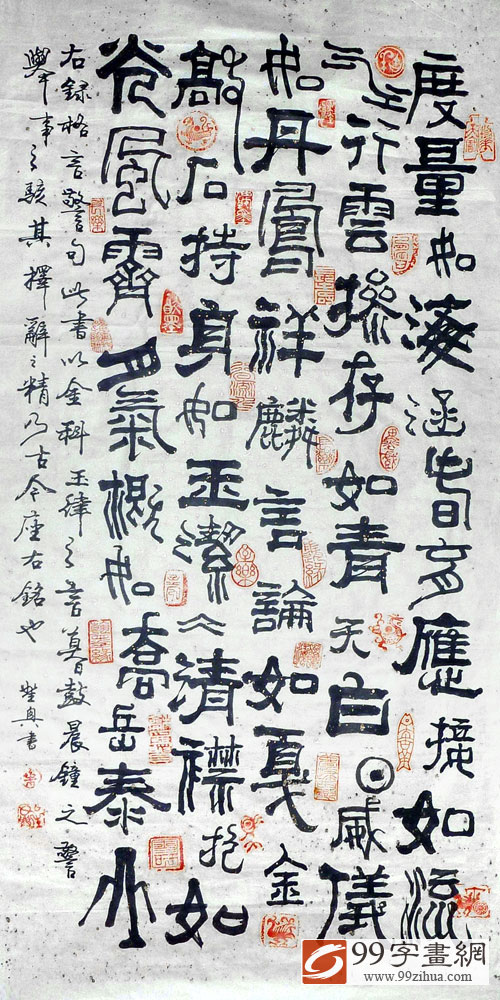 度量如海涵春育應接如流
水行雲操存如青天白日威儀
如丹鳳祥麟言論如戛金
敲石持身如玉潔冰清襟抱如
光風霽月氣概如喬岳泰山
右錄格言警句此書以金科玉律之言暮鼓晨鐘之警
舉事之其擇辭之精乃古今座右銘也
書
99字畫網
www.99zihua.com